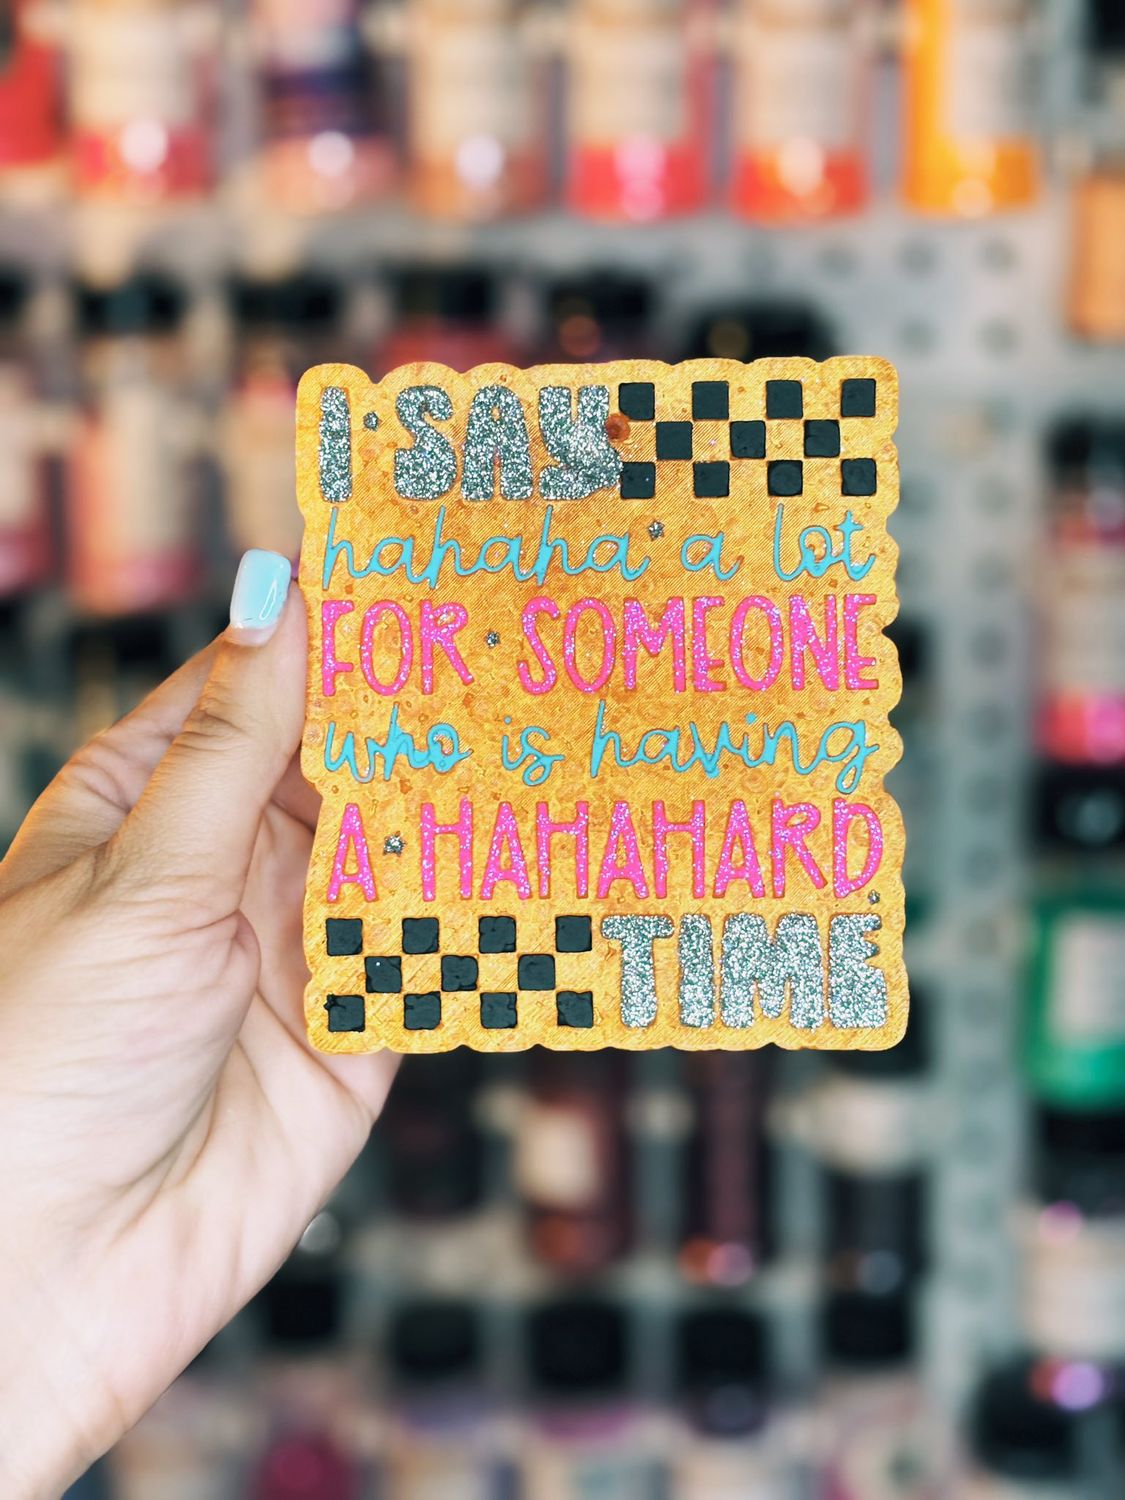 I SAY
hahaha a lot
FOR SOMEONE
who is having
A HAHAHARD
TIME